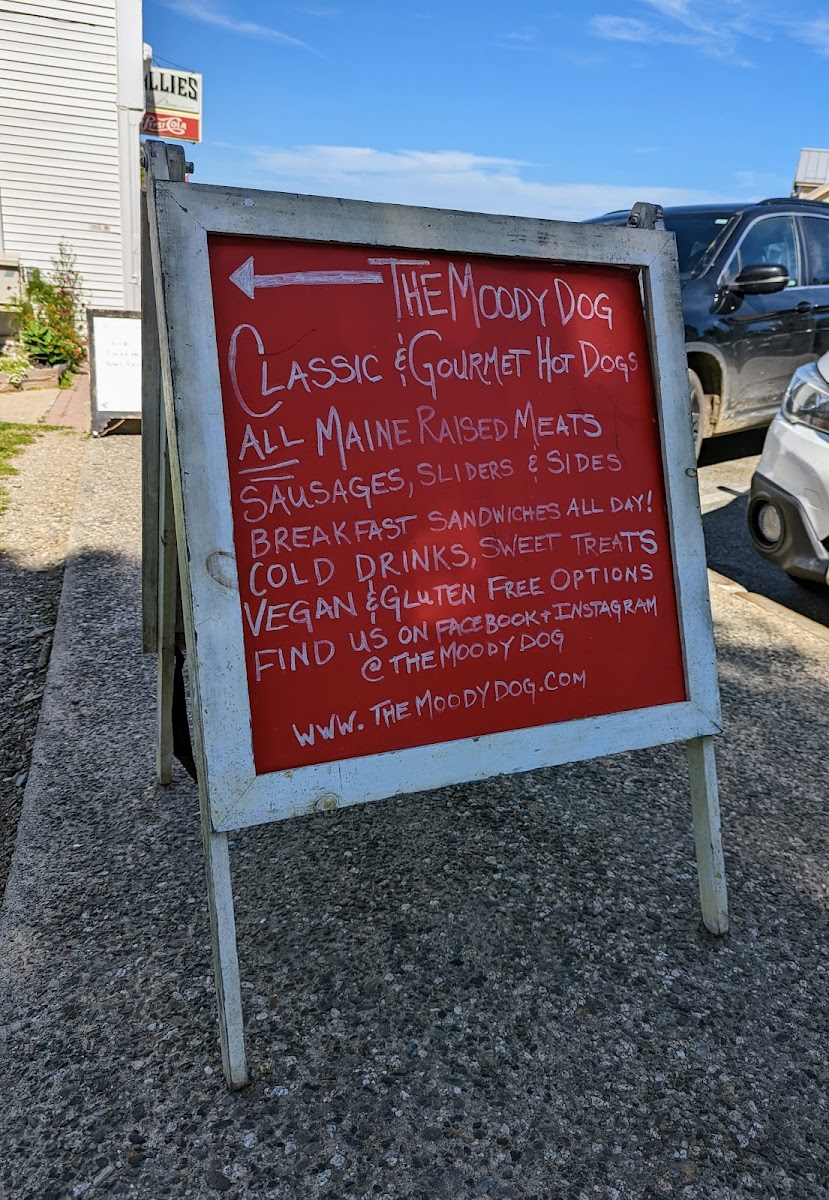 LLIES
PEPSI COLA
THE MOODY DOG
CLASSIC & GOURMET HOT DOGS
ALL MAINE RAISED MEATS
SAUSAGES, SLIDERS & SIDES
BREAKFAST SANDWICHES ALL DAY!
COLD DRINKS, SWEET TREATS
VEGAN & GLUTEN FREE OPTIONS
FIND US ON FACEBOOK + INSTAGRAM
@THEMOODYDOG
WWW.THEMOODYDOG.COM